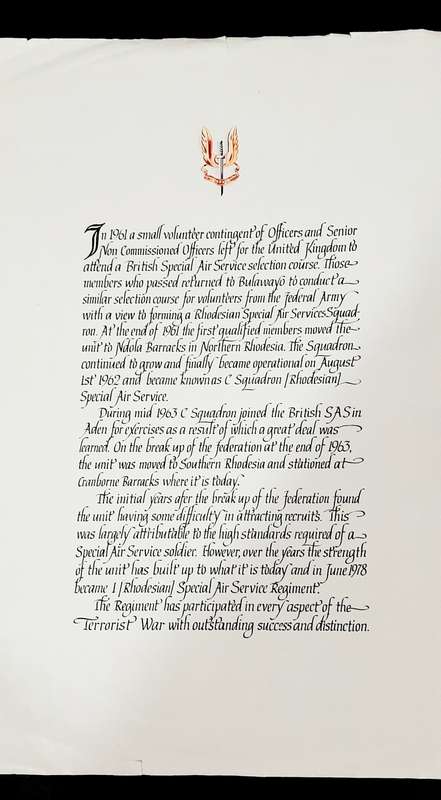 In 1961 a small volunteer contingent of Officers and Senior
Non Commissioned Officers left for the United Kingdom to
attend a British Special Air Service selection course. Those
members who passed returned to Bulawayo to conduct a
similar selection course for volunteers from the Federal Army
with a view to forming a Rhodesian Special Air Services Squad-
ron. At the end of 1961 the first qualified members moved the
unit to Ndola Barracks in Northern Rhodesia. The Squadron
continued to grow and finally became operational on August
1st 1962 and became known as C Squadron [Rhodesian]
Special Air Service.
During mid 1963 C Squadron joined the British SAS in
Aden for exercises as a result of which a great deal was
learned. On the break up of the federation at the end of 1963,
the unit was moved to Southern Rhodesia and stationed at
Cranborne Barracks where it is today.
The initial years afer the break up of the federation found
the unit having some difficulty in attracting recruits. This
was largely attributable to the high standards required of a
Special Air Service soldier. However, over the years the strength
of the unit has built up to what it is today and in June 1978
became 1 [Rhodesian] Special Air Service Regiment.
The Regiment has participated in every aspect of the
Terrorist War with outstanding success and distinction.